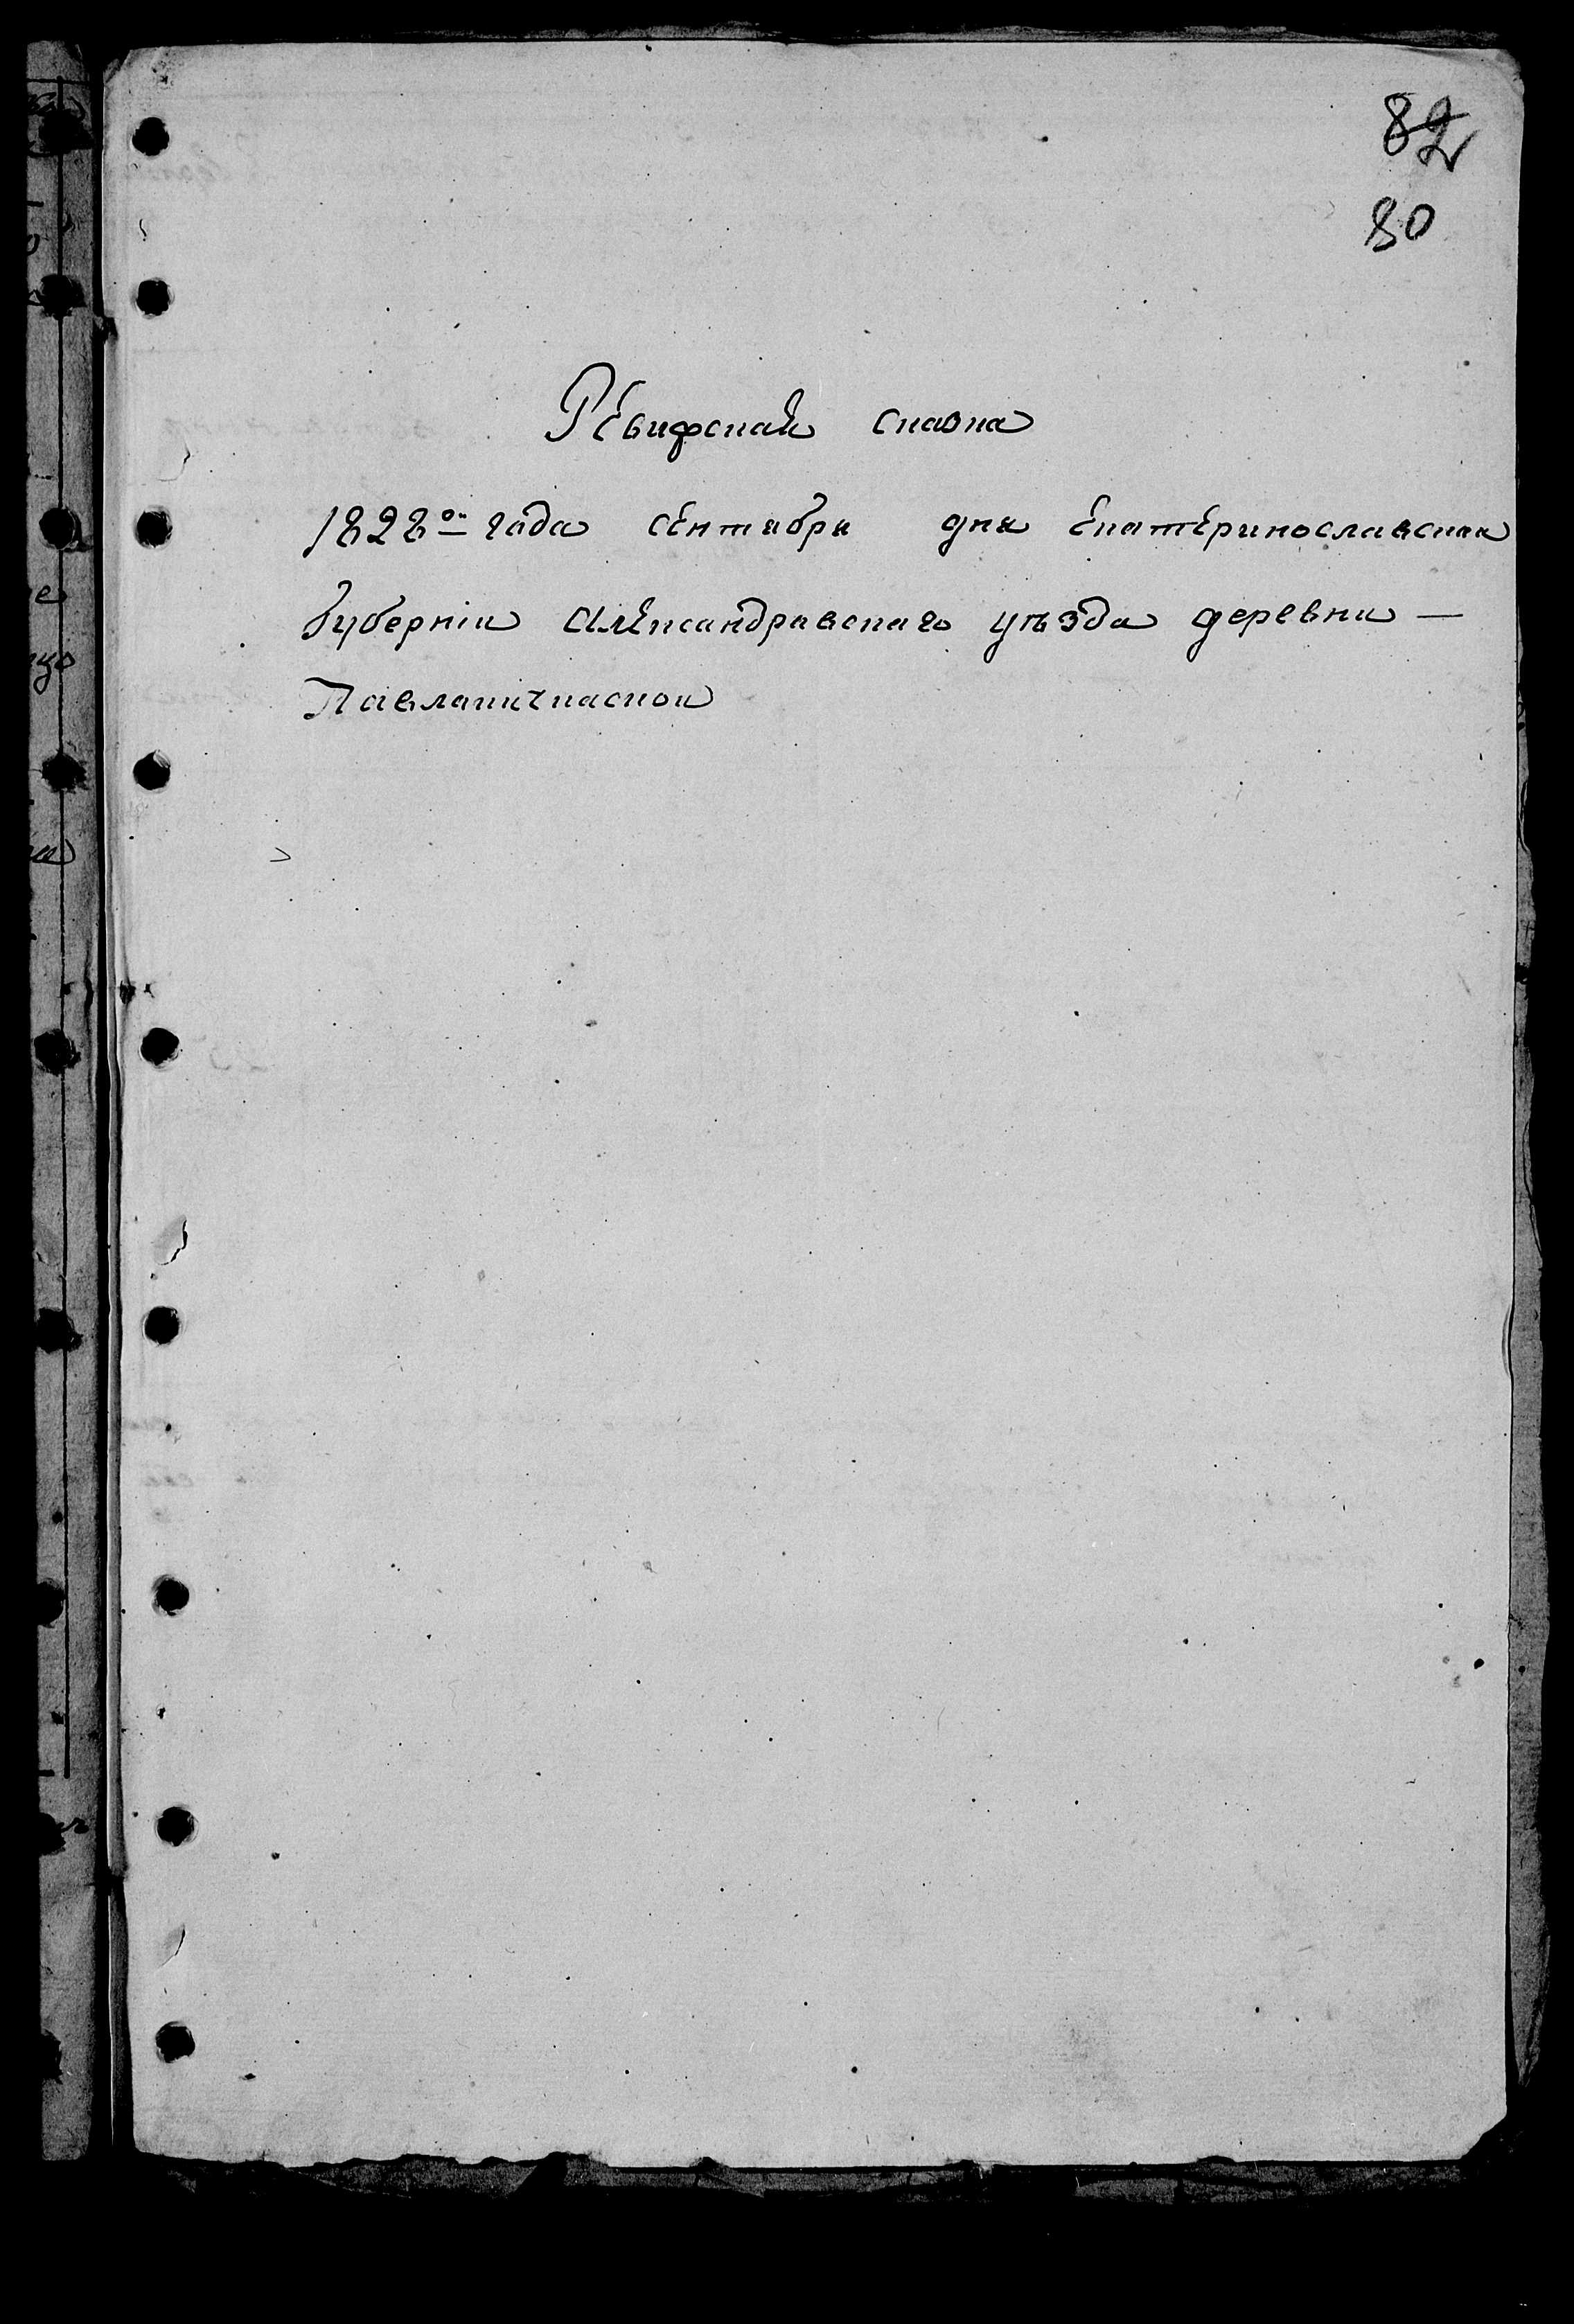 82
80
Ревифскаѧ скаска
1828ᵒᵍᵒ года сентября дня екатеринославскои
Губерніи Александравскаго уѣзда деревни —
Павлашичкаскои